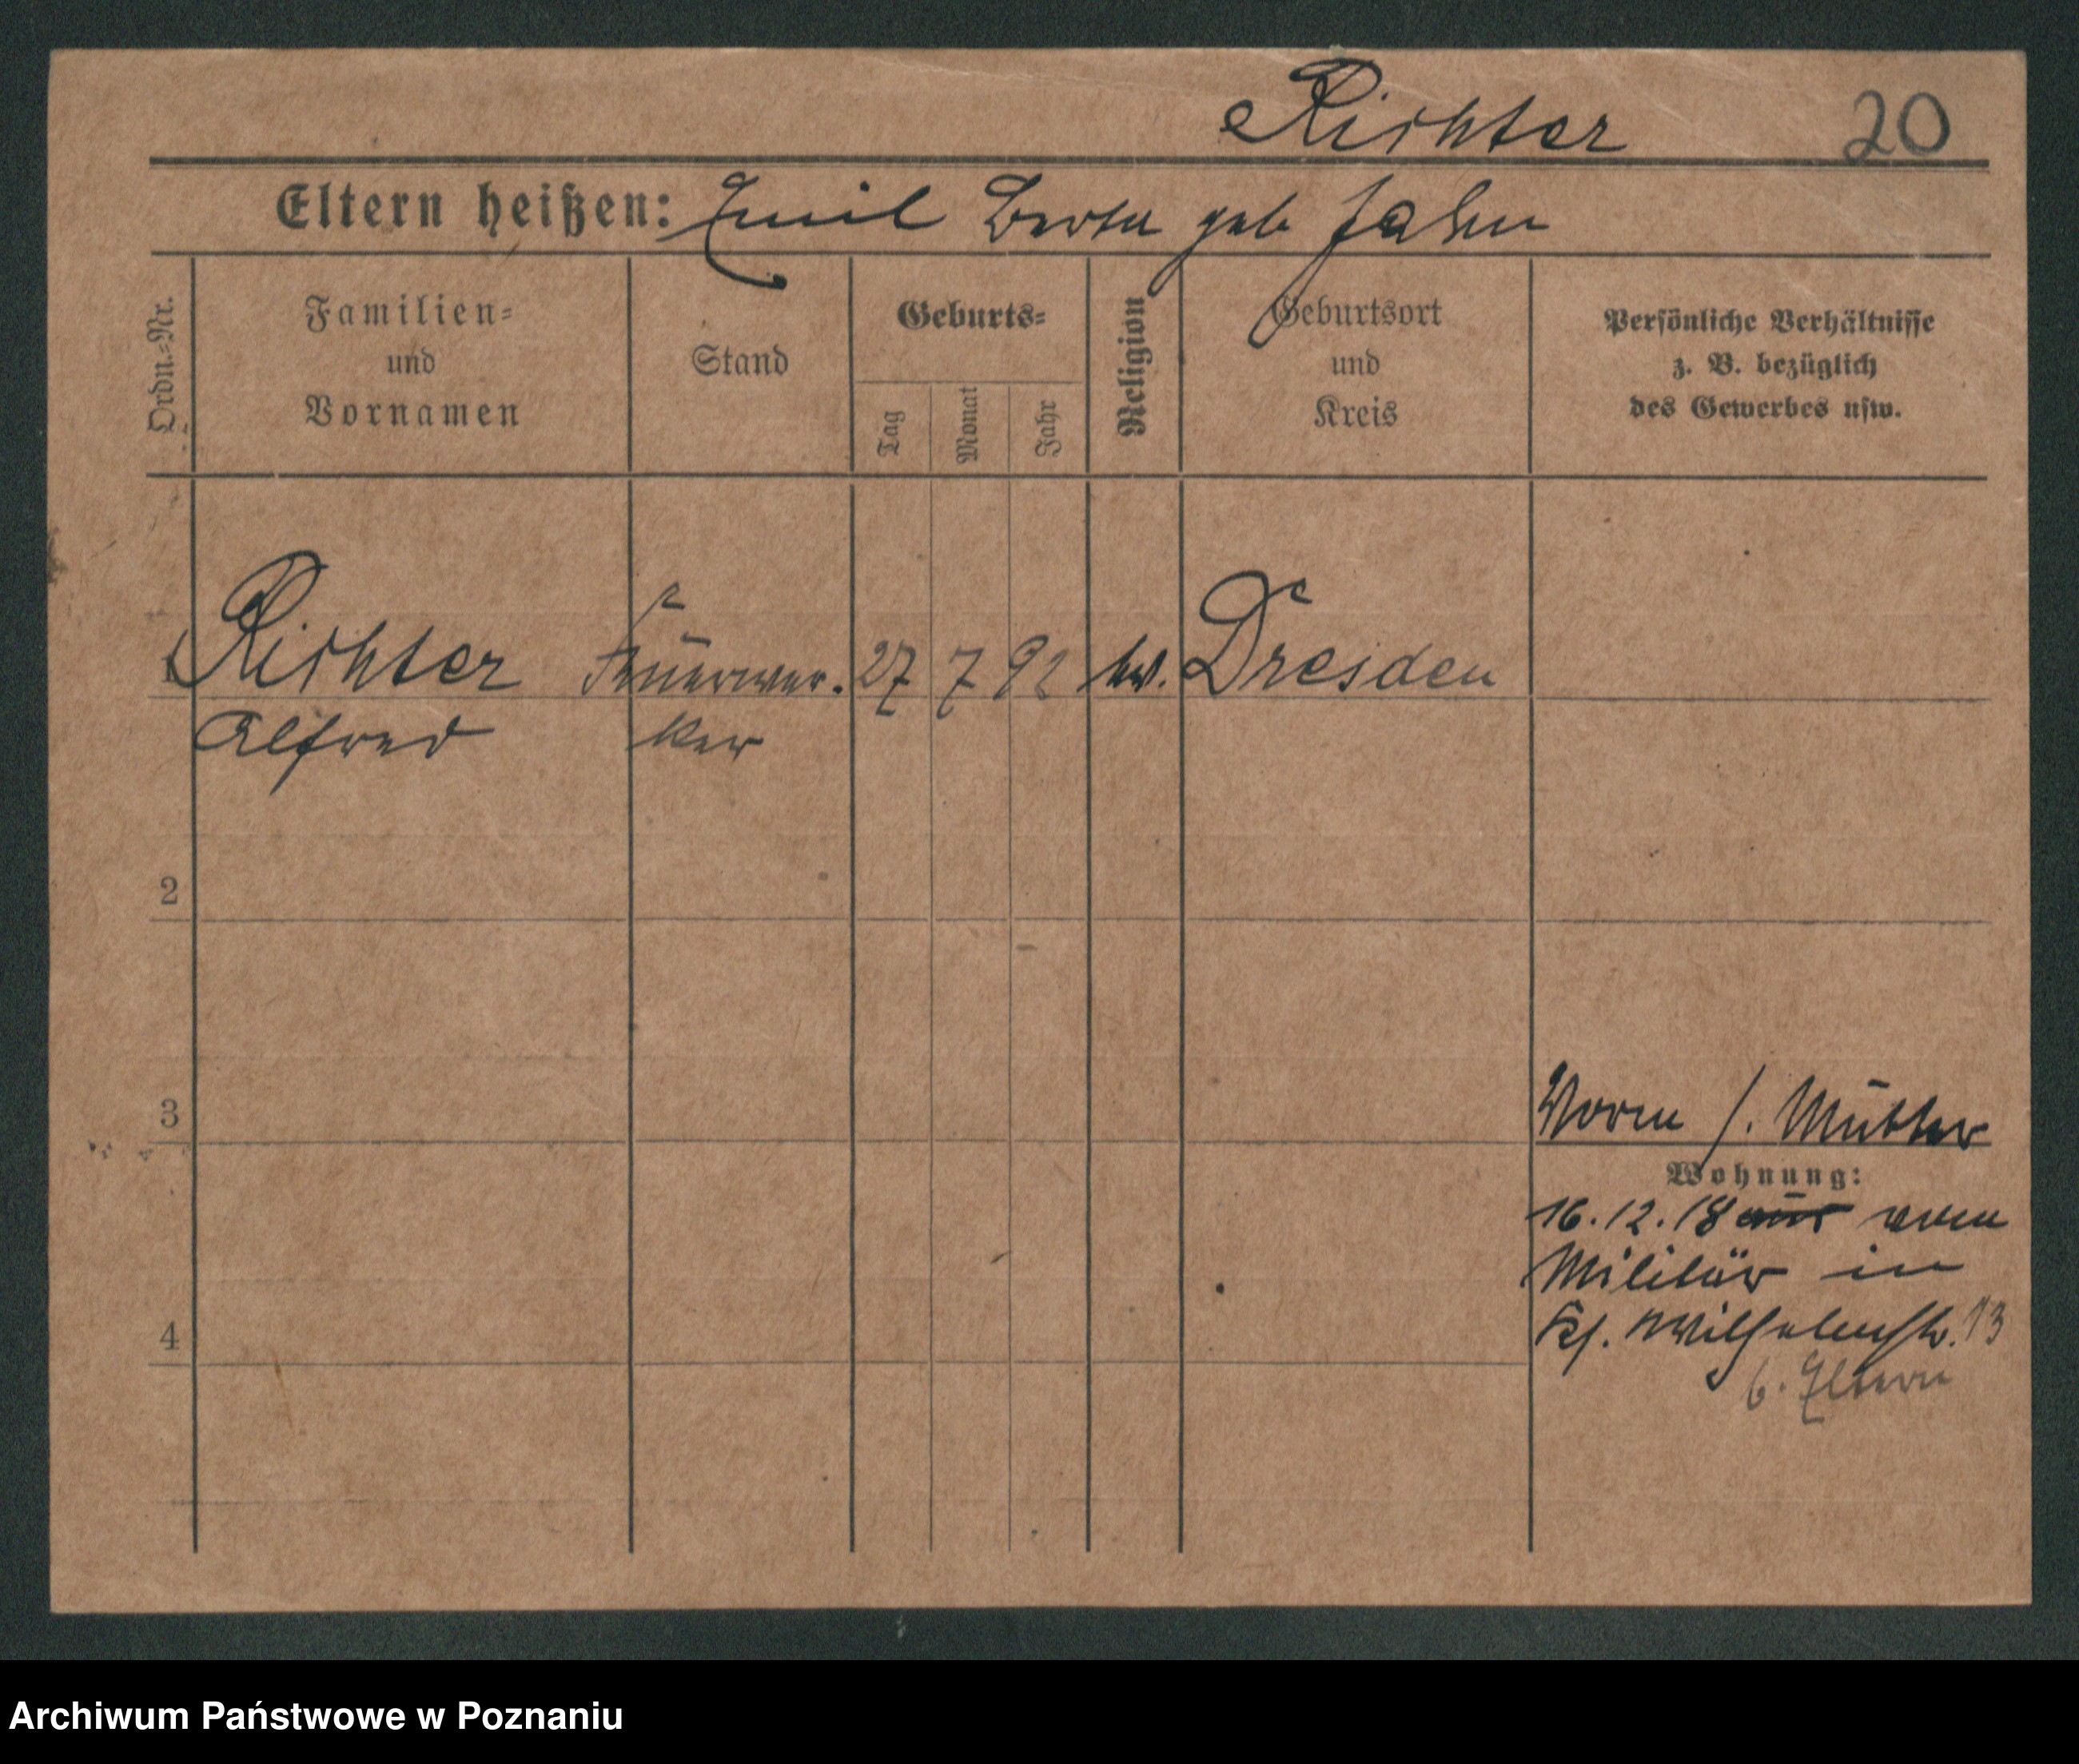 Richter 20
Eltern heißen: Emil Berta geb Jahn
Ordn.-Nr.
Familien-
und
Vornamen
Stand
Geburts-
Tag
Monat
Jahr
Religion
Geburtsort
und
Kreis
Persönliche Verhältnisse
z. B. bezüglich
des Gewerbes usw.
1 Richter Feuerwer- 27 7 92 ev. Dresden
Alfred ker
2
3
Vorm /. Mutter
Wohnung:
16.12.18 vom
Militär in
Wilhelmstr. 13
b. Eltern
4
Archiwum Państwowe w Poznaniu